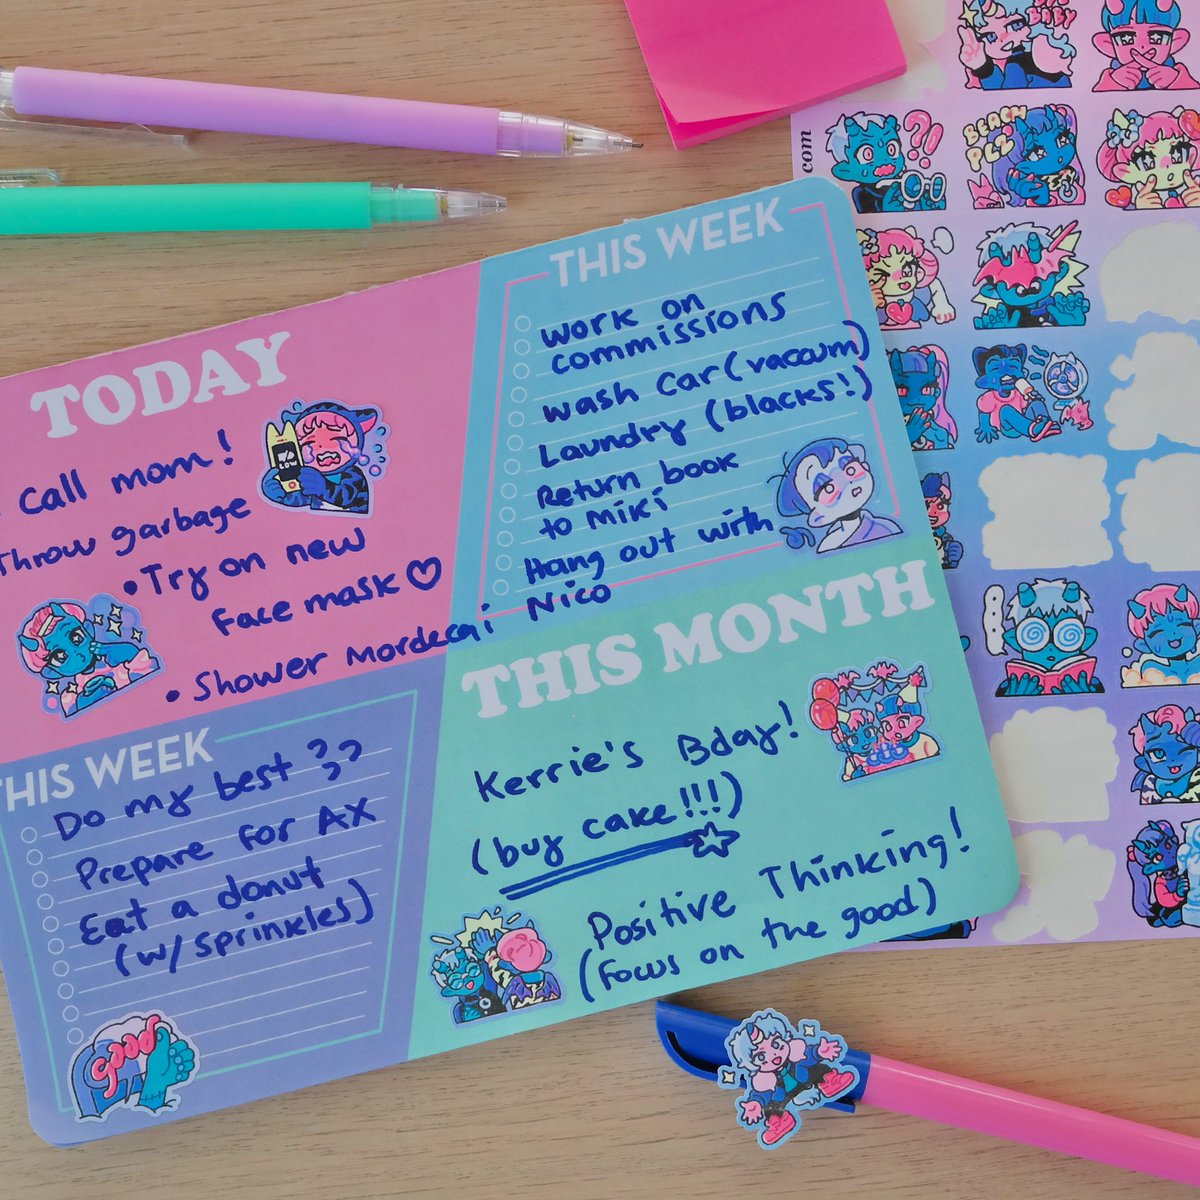 TODAY
• Call mom!
Throw garbage
• Try on new
Face mask ♡
• Shower Mordecai
THIS WEEK
Work on
commissions
Wash car (vaccum)
Laundry (blacks!)
Return book
to Miki
Hang out with
Nico
THIS WEEK
Do my best ??
Prepare for AX
Eat a donut
(w/ sprinkles)
good
THIS MONTH
Kerrie's Bday!
(buy cake!!!)
Positive Thinking!
(Focus on the good)
LOW
BABY
?!
BEACH
PLZ
.com